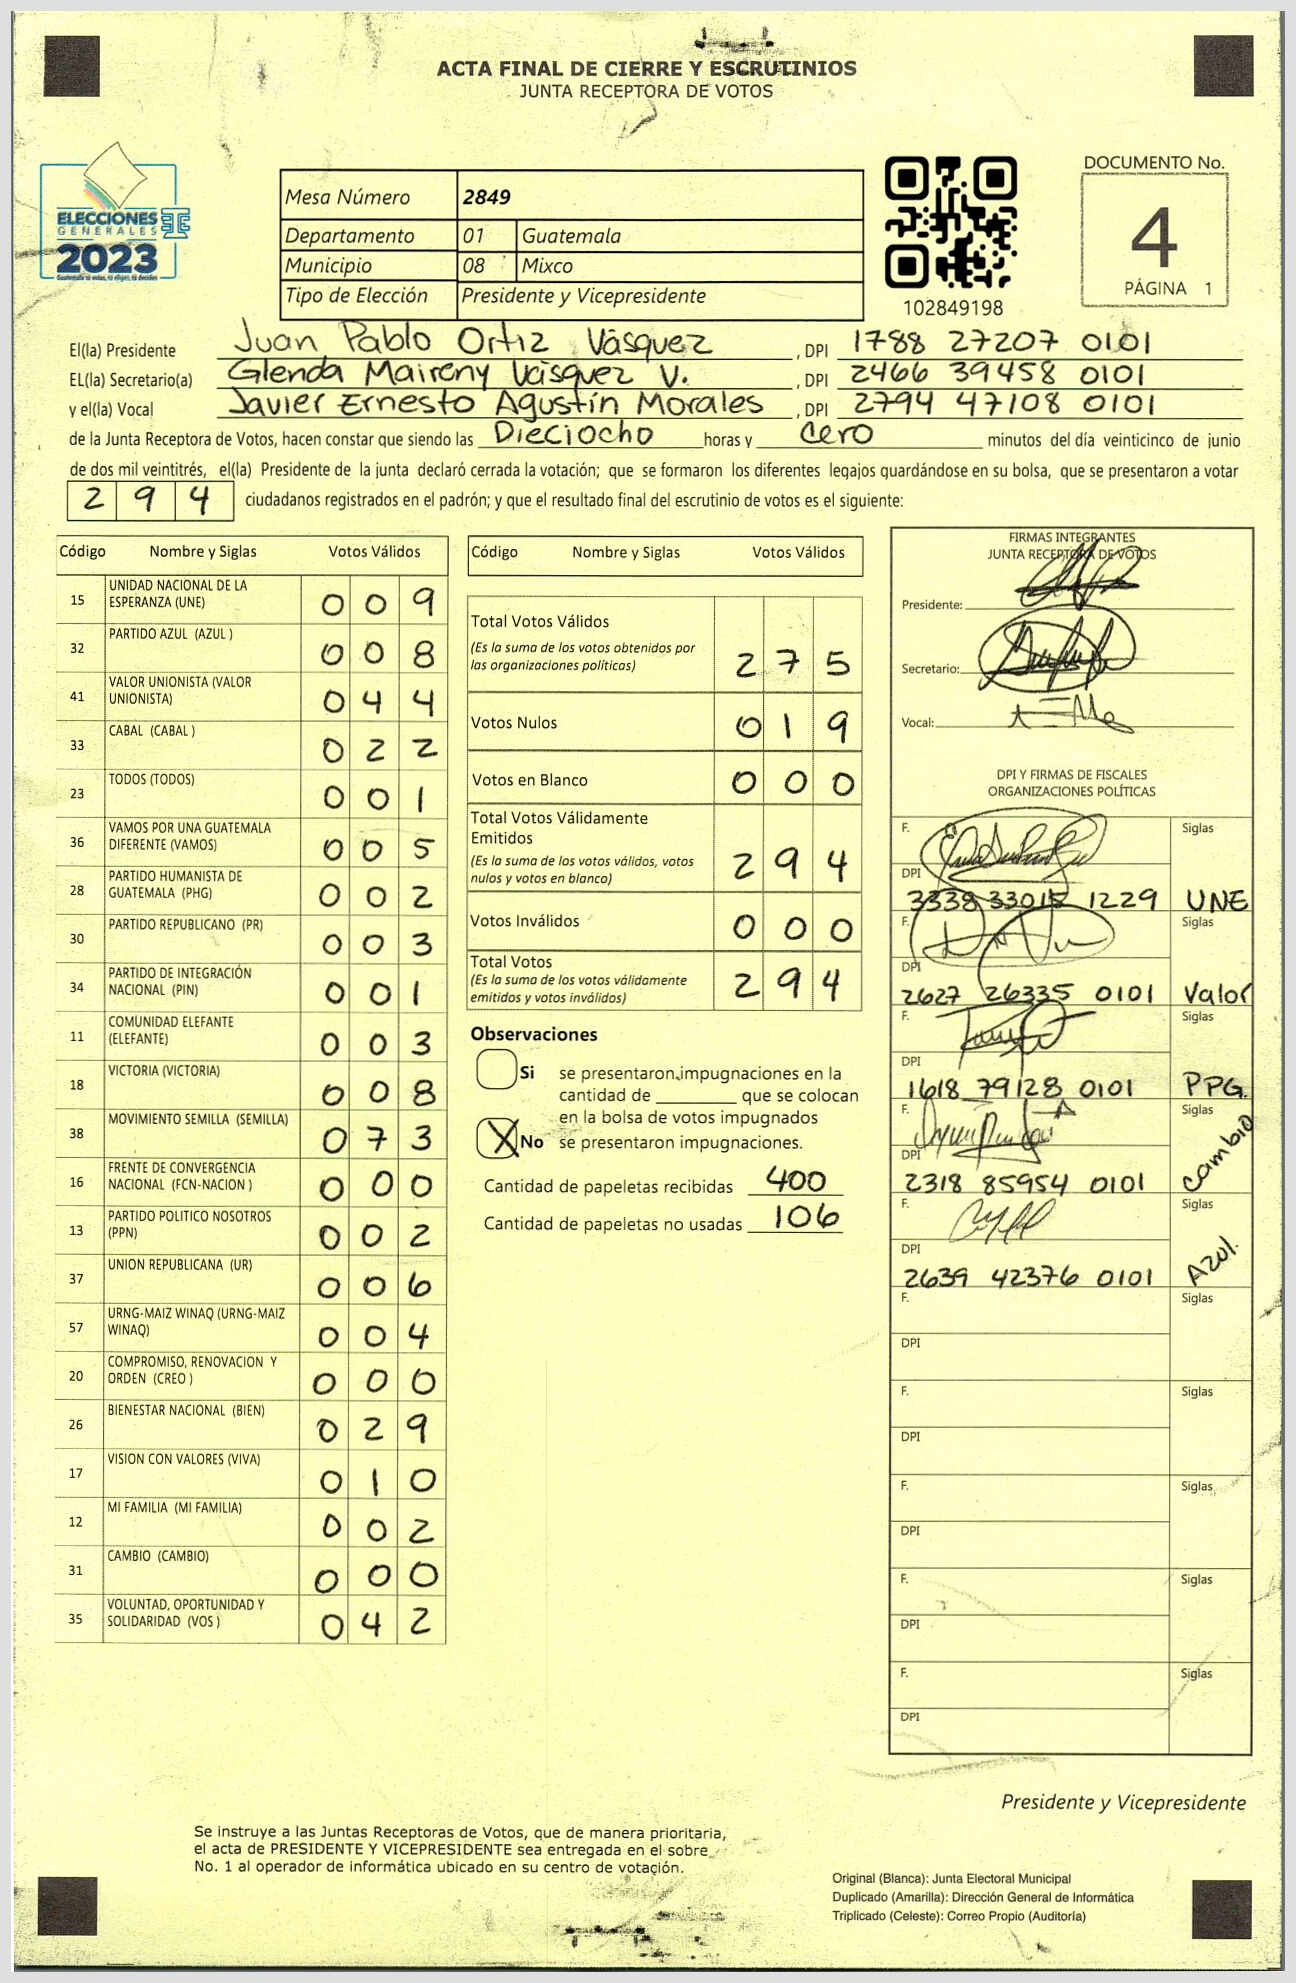 ACTA FINAL DE CIERRE Y ESCRUTINIOS
JUNTA RECEPTORA DE VOTOS
ELECCIONES
GENERALES
2023
Mesa Número 2849
Departamento 01 Guatemala
Municipio 08 Mixco
Tipo de Elección Presidente y Vicepresidente
102849198
DOCUMENTO No.
4
PÁGINA 1
El(la) Presidente Juan Pablo Ortiz Vásquez , DPI 1788 27207 0101
EL(la) Secretario(a) Glenda Maireny Vásquez V. , DPI 2466 39458 0101
y el(la) Vocal Javier Ernesto Agustín Morales , DPI 2794 47108 0101
de la Junta Receptora de Votos, hacen constar que siendo las Dieciocho horas y cero minutos del día veinticinco de junio
de dos mil veintitrés, el(la) Presidente de la junta declaró cerrada la votación; que se formaron los diferentes legajos guardándose en su bolsa, que se presentaron a votar
294 ciudadanos registrados en el padrón; y que el resultado final del escrutinio de votos es el siguiente:
Código Nombre y Siglas Votos Válidos
15 UNIDAD NACIONAL DE LA ESPERANZA (UNE) 009
32 PARTIDO AZUL (AZUL ) 008
41 VALOR UNIONISTA (VALOR UNIONISTA) 044
33 CABAL (CABAL ) 022
23 TODOS (TODOS) 001
36 VAMOS POR UNA GUATEMALA DIFERENTE (VAMOS) 005
28 PARTIDO HUMANISTA DE GUATEMALA (PHG) 002
30 PARTIDO REPUBLICANO (PR) 003
34 PARTIDO DE INTEGRACIÓN NACIONAL (PIN) 001
11 COMUNIDAD ELEFANTE (ELEFANTE) 003
18 VICTORIA (VICTORIA) 008
38 MOVIMIENTO SEMILLA (SEMILLA) 073
16 FRENTE DE CONVERGENCIA NACIONAL (FCN-NACION ) 000
13 PARTIDO POLITICO NOSOTROS (PPN) 002
37 UNION REPUBLICANA (UR) 006
57 URNG-MAIZ WINAQ (URNG-MAIZ WINAQ) 004
20 COMPROMISO, RENOVACION Y ORDEN (CREO ) 000
26 BIENESTAR NACIONAL (BIEN) 029
17 VISION CON VALORES (VIVA) 010
12 MI FAMILIA (MI FAMILIA) 002
31 CAMBIO (CAMBIO) 000
35 VOLUNTAD, OPORTUNIDAD Y SOLIDARIDAD (VOS ) 042
Código Nombre y Siglas Votos Válidos
Total Votos Válidos 275
(Es la suma de los votos obtenidos por
las organizaciones políticas)
Votos Nulos 019
Votos en Blanco 000
Total Votos Válidamente
Emitidos 294
(Es la suma de los votos válidos, votos
nulos y votos en blanco)
Votos Inválidos 000
Total Votos 294
(Es la suma de los votos válidamente
emitidos y votos inválidos)
Observaciones
Si se presentaron impugnaciones en la
cantidad de ________ que se colocan
en la bolsa de votos impugnados
X No se presentaron impugnaciones.
Cantidad de papeletas recibidas 400
Cantidad de papeletas no usadas 106
FIRMAS INTEGRANTES
JUNTA RECEPTORA DE VOTOS
Presidente:
Secretario:
Vocal:
DPI Y FIRMAS DE FISCALES
ORGANIZACIONES POLÍTICAS
F. Siglas
DPI
3338 33015 1229 UNE
F. Siglas
DPI
2627 26335 0101 Valor
F. Siglas
DPI
1618 79128 0101 PPG.
F. Siglas
DPI
2318 85954 0101 Cambio
F. Siglas
DPI
2639 42376 0101 Azul.
F. Siglas
DPI
F. Siglas
DPI
F. Siglas
DPI
F. Siglas
DPI
F. Siglas
DPI
Presidente y Vicepresidente
Se instruye a las Juntas Receptoras de Votos, que de manera prioritaria,
el acta de PRESIDENTE Y VICEPRESIDENTE sea entregada en el sobre
No. 1 al operador de informática ubicado en su centro de votación.
Original (Blanca): Junta Electoral Municipal
Duplicado (Amarilla): Dirección General de Informática
Triplicado (Celeste): Correo Propio (Auditoría)